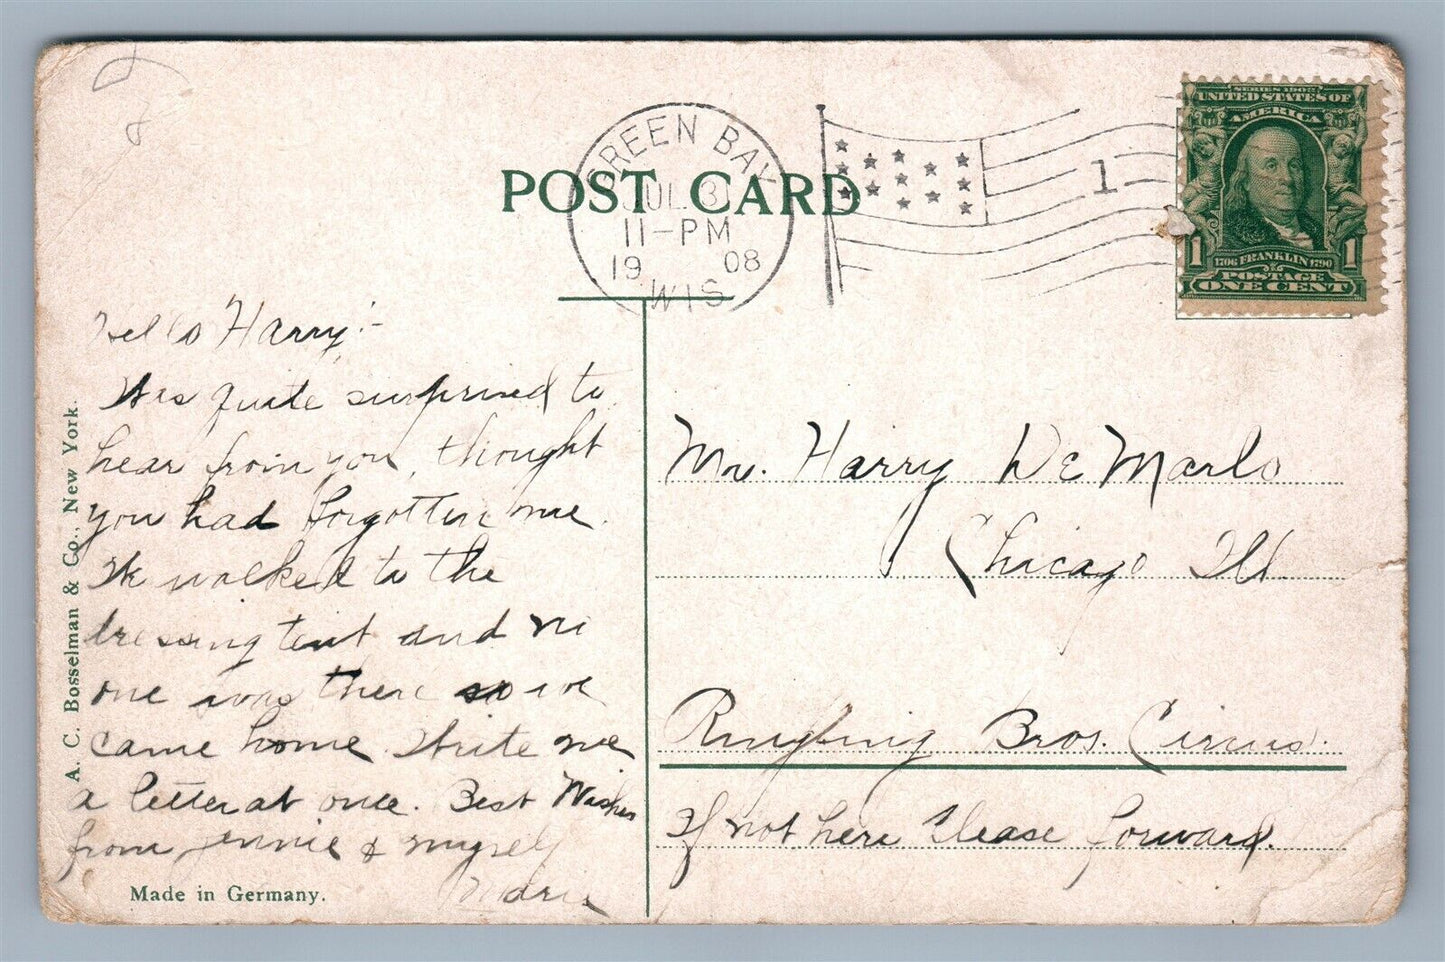 POST CARD
GREEN BAY
JUL 3
11-PM
19 08
WIS
1
SERIES 1902
UNITED STATES OF
AMERICA
1706 FRANKLIN 1790
1 POSTAGE 1
ONE CENT
Hello Harry:-
Was quite surprised to
hear from you, thought
you had forgotten me.
We walked to the
dressing tent and no
one was there so we
came home. Write me
a letter at once. Best Wishes
from Jennie & myself
Marie
Mr. Harry De Marlo
Chicago Ill.
Ringling Bros. Circus.
If not here Please forward.
A. C. Bosselman & Co., New York.
Made in Germany.